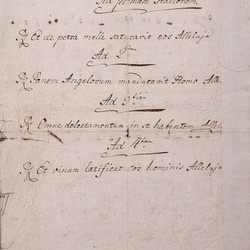 Ad primam Stationem
℟ Et de petra melle saturavit eos Alleluja
Ad 2
℟ Panem Angelorum manducavit Homo Alle.
Ad 3tiam
℟ Omne delectamentum in se habentem Allel.
Ad 4tam
℟ Et vinum laetificat cor hominis Alleluja